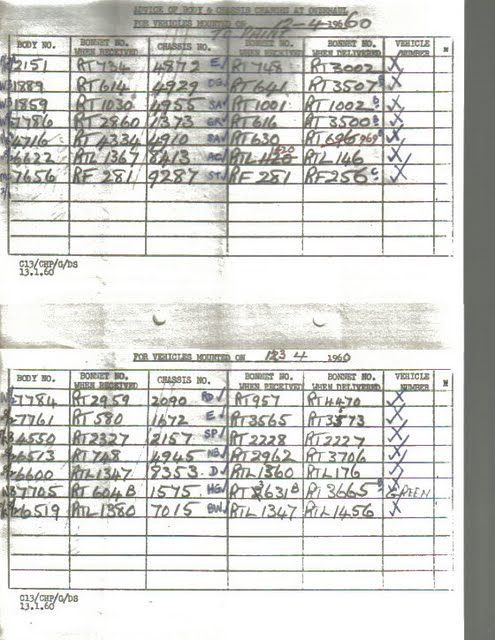 ADVICE OF BODY & CHASSIS CHANGES AT OVERHAUL
FOR VEHICLES MOUNTED ON 12-4-1960
TO PAINT
BODY NO. BONNET NO. WHEN RECEIVED CHASSIS NO. BONNET NO. WHEN RECEIVED BONNET NO. WHEN DELIVERED VEHICLE NUMBER
2151 RT 734 4872 E/ RT 748 RT 3002 X
1889 RT 614 4929 DG/ RT 641 RT 3507 B X
1859 RT 1030 4955 SA/ RT 1001 RT 1002 B X
7786 RT 2860 1373 GR/ RT 616 RT 3500 B X
4716 RT 4334 4910 SA/ RT 630 RT 969 B X
6622 RTL 1367 8413 AC/ RTL 1420 RTL 146 X
7656 RF 281 9287 ST/ RF 281 RF 256 C X
C13/CHP/G/DS
13.1.60
FOR VEHICLES MOUNTED ON 13 4 1960
BODY NO. BONNET NO. WHEN RECEIVED CHASSIS NO. BONNET NO. BONNET NO. WHEN DELIVERED VEHICLE NUMBER
7784 RT 2959 2090 RD/ RT 957 RT 4470 X
7761 RT 580 1672 E/ RT 3565 RT 3573 X
4550 RT 2327 2157 SP/ RT 2228 RT 2227 X
6513 RT 748 4945 NB/ RT 2962 RT 3706 X
6600 RTL 1347 8353 D/ RTL 1360 RTL 176 X
7705 RT 604 B 1575 HG/ RT 631 B RT 3665 B GREEN
6519 RTL 1380 7015 BW/ RTL 1347 RTL 1456 X
C13/CHP/G/DS
13.1.60